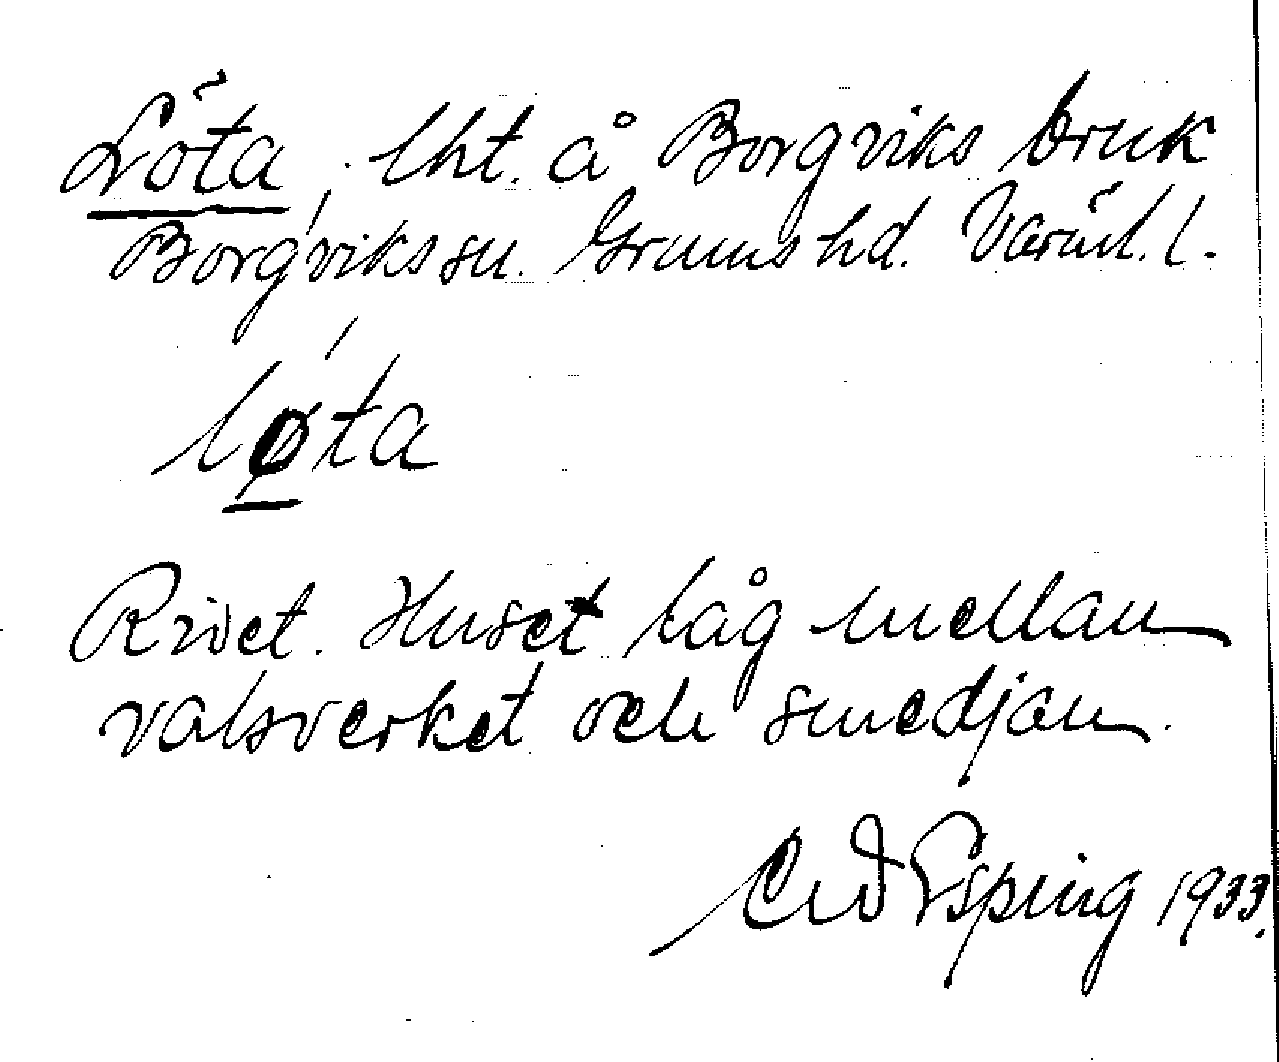 Löta, lht. å Borgviks bruk
Borgviks sn. Grums hd. Värml. l.
lǿ̱ta
Rivet. Huset låg mellan
valsverket och smedjan.
Esping 1933.